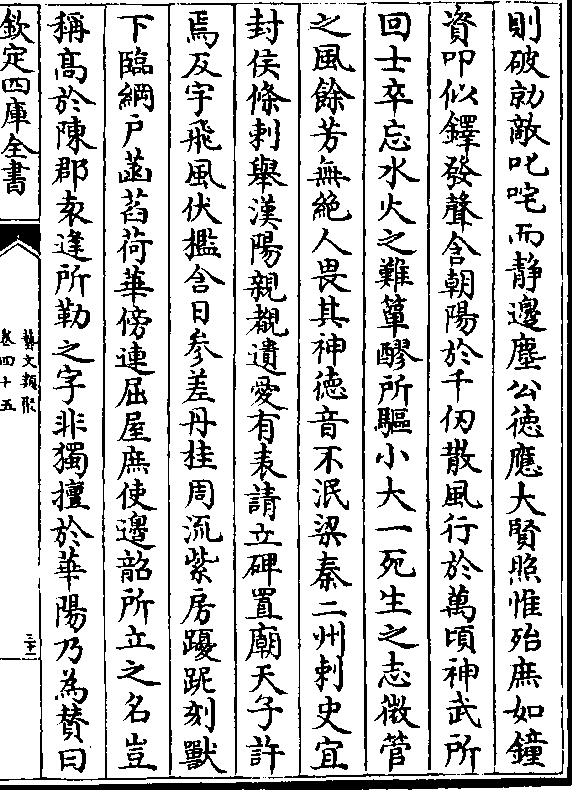 則破勍敵叱咤而静邊塵公徳應大賢照惟殆庶如鐘
資叩似鐸發聲含朝陽於千仞散風行於萬頃神武所
回士卒忘水火之難簞醪所驅小大一死生之志微管
之風餘芳無絶人畏其神徳音不泯梁秦二州刺史宜
封侯條刺舉漢陽親覩遺愛有表請立碑置廟天子許
焉反宇飛風伏檻含日参差丹桂周流紫房躨跜刻獸
下臨網户菡萏荷華傍連屈屋庶使邊韶所立之名豈
稱髙於陳郡袁逢所勒之字非獨擅於華陽乃為賛曰
欽定四庫全書
藝文類聚
卷四十五